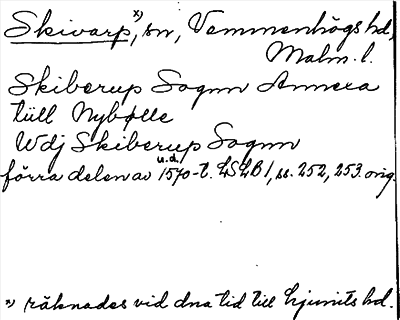 Skivarp,ˣ⁾ sn, Vemmenhögs hd,
Malm. l.
Skiberup Sognn Annexa
tiill Nybølle
Wdj Skiberup Sognn
u.d.
förra delen av 1570-t. LSLB 1, ss. 252, 253. orig.
ˣ⁾ räknades vid dna tid till Ljunits hd.